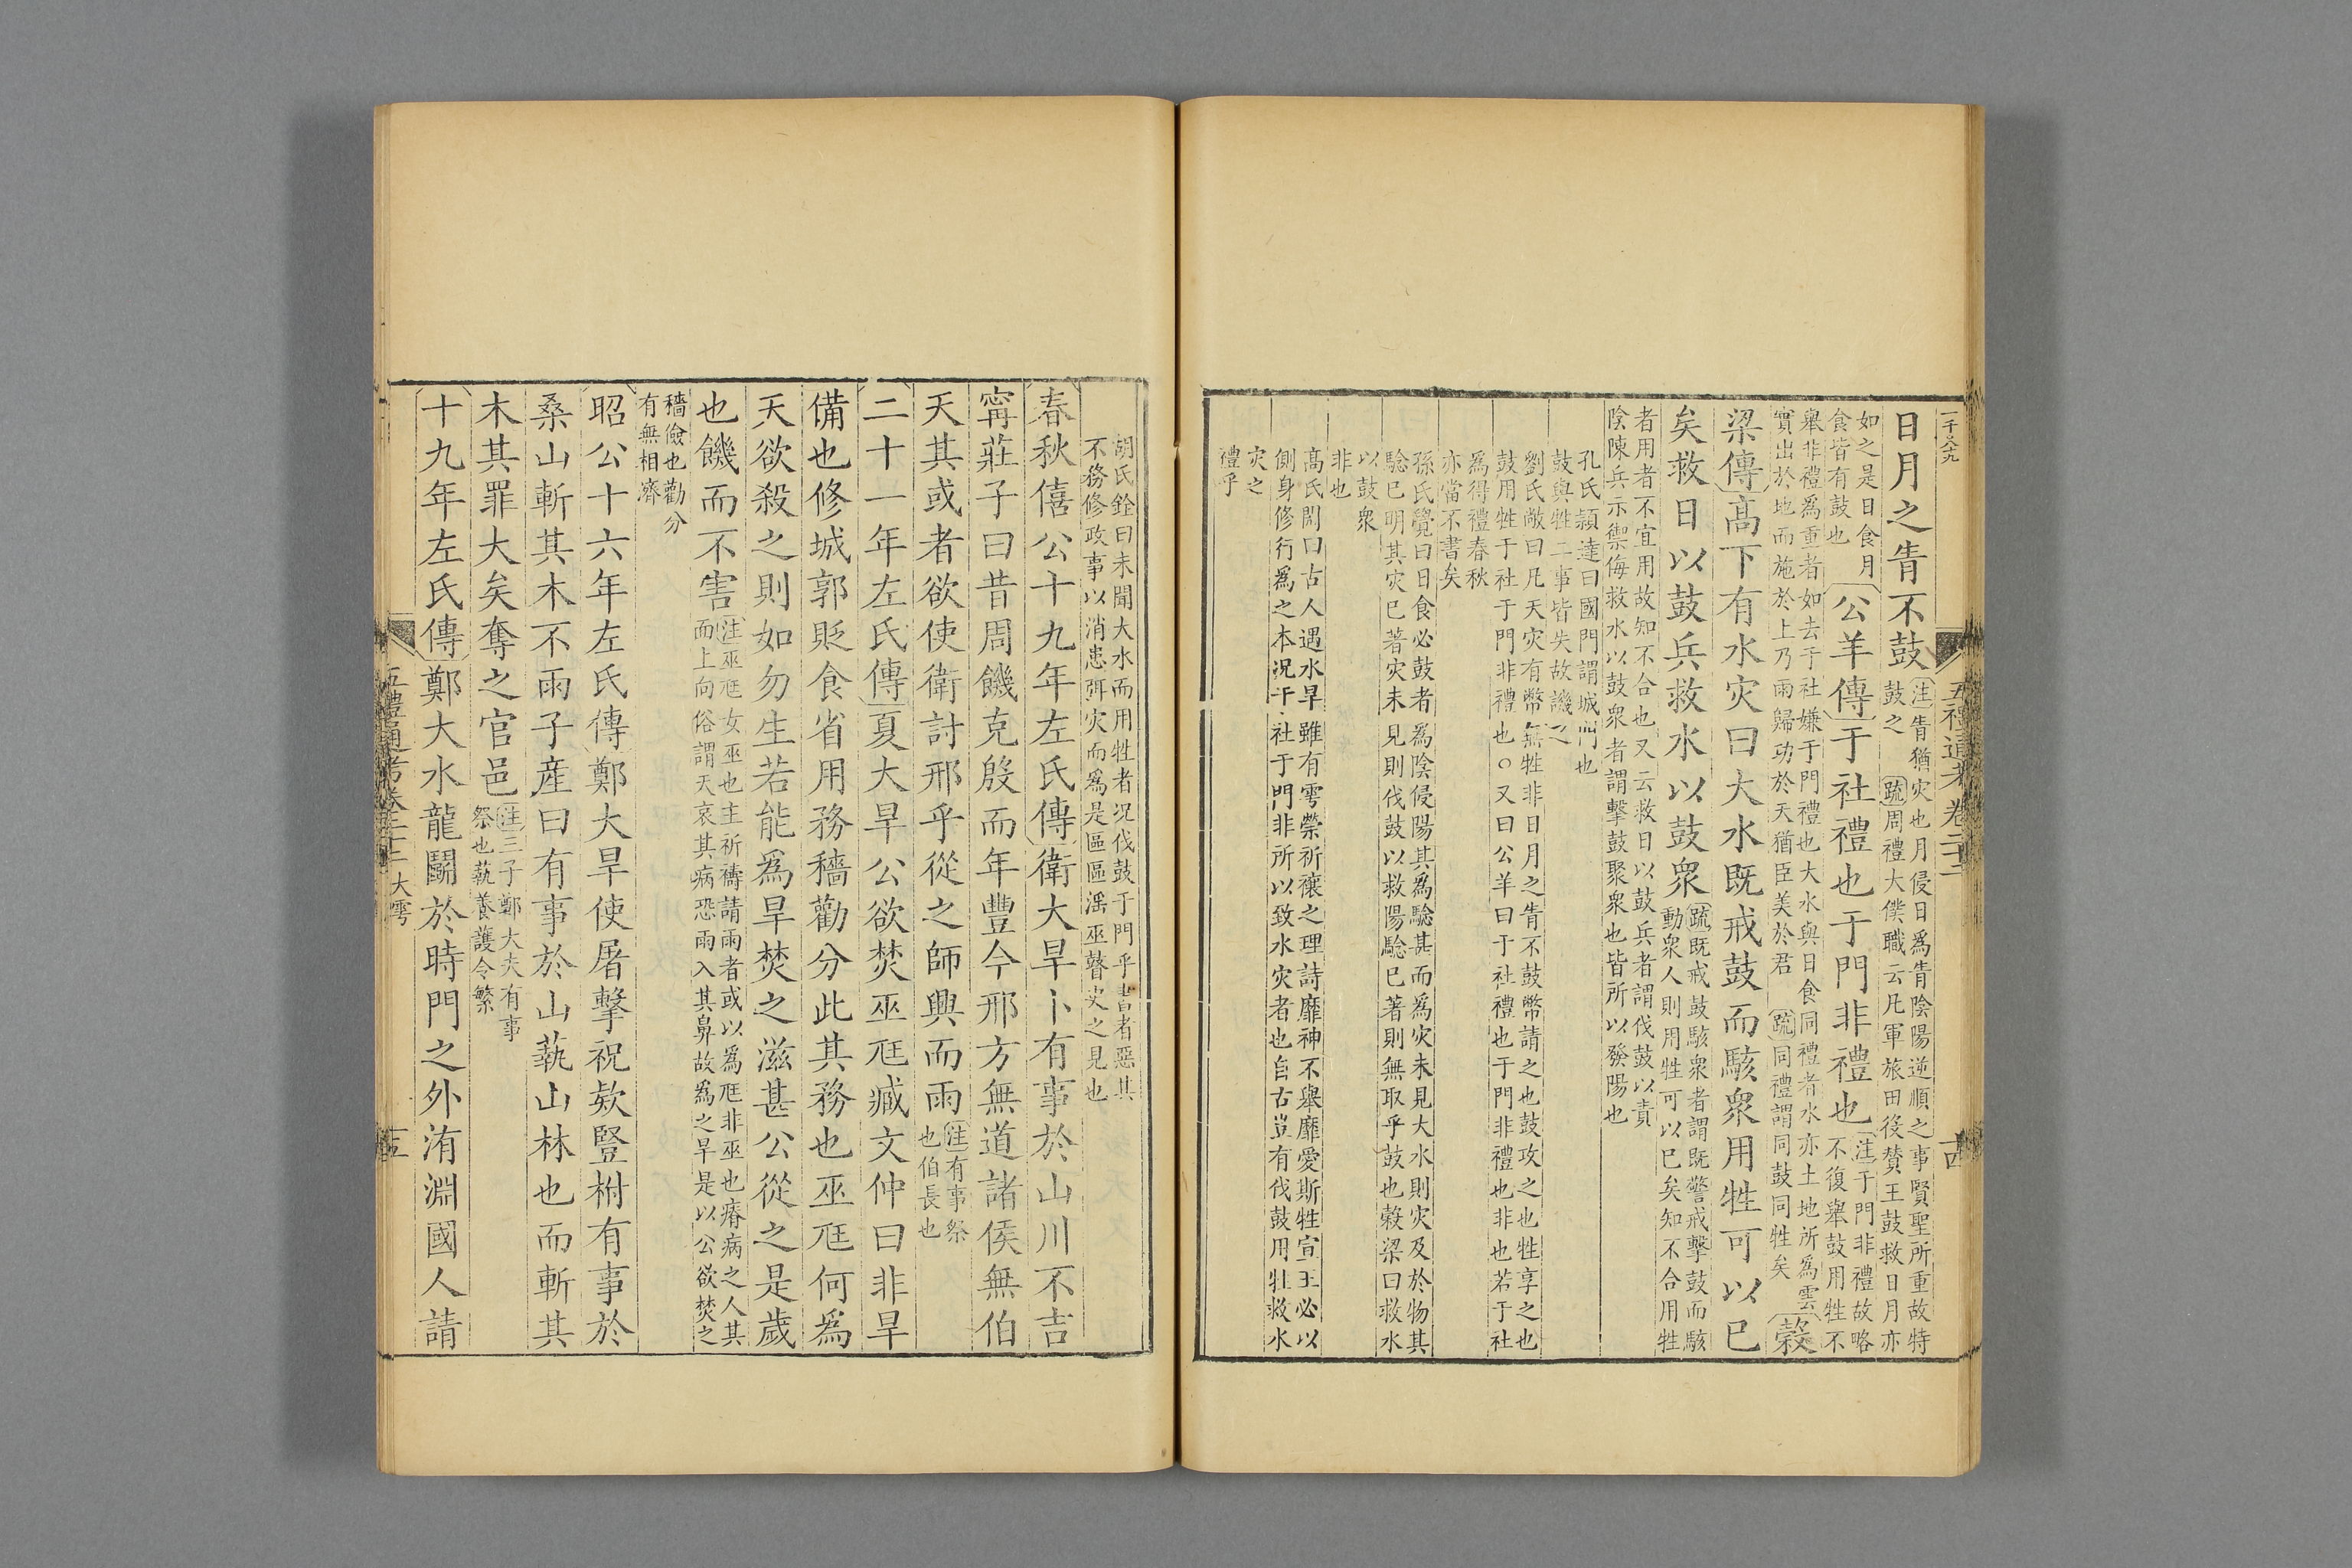 五禮通考卷二十二
十四
日月之眚不鼓
注眚猶灾也月侵日爲眚陰陽逆順之事賢聖所重故特
鼓之 疏周禮大僕職云凡軍旅田役賛王鼓救日月亦
如之是日食月
食皆有鼓也
公羊傳于社禮也于門非禮也
注于門非禮故略
不復舉鼓用牲不
舉非禮爲重者如去于社嫌于門禮也大水與日食同禮者水亦土地所爲雲
實出於地而施於上乃雨歸功於天猶臣美於君 疏同禮謂同鼓同牲矣
穀
梁傳高下有水灾曰大水既戒鼓而駭衆用牲可以已
矣救日以鼓兵救水以鼓衆
疏既戒鼓駭衆者謂既警戒擊鼓而駭
動衆人則用牲可以已矣知不合用牲
者用者不宜用故知不合也又云救日以鼓兵者謂伐鼓以責
陰陳兵示禦侮救水以鼓衆者謂擊鼓聚衆也皆所以發陽也
孔氏穎達曰國門謂城門也
鼓與牲二事皆失故譏之
劉氏敞曰凡天灾有幣無牲非日月之眚不鼓幣請之也鼓攻之也牲享之也
鼓用牲于社于門非禮也○又曰公羊曰于社禮也于門非禮也非也若于社
爲得禮春秋
亦當不書矣
孫氏覺曰日食必鼓者爲陰侵陽其爲騐甚而爲灾未見大水則灾及於物其
騐已明其灾已著灾未見則伐鼓以救陽騐已著則無取乎鼓也榖梁曰救水
以鼓衆
非也
高氏閌曰古人遇水旱雖有雩禜祈禳之理詩靡神不舉靡愛斯牲宣王必以
側身修行爲之本况于社于門非所以致水灾者也自古豈有伐鼓用牲救水
灾之
禮乎
胡氏銓曰未聞大水而用牲者况伐鼓于門乎書者惡其
不務修政事以消患弭灾而爲是區區滛巫瞽史之見也
春秋僖公十九年左氏傳衛大旱卜有事於山川不吉
甯莊子曰昔周饑克殷而年豐今邢方無道諸侯無伯
天其或者欲使衛討邢乎從之師興而雨
注有事祭
也伯長也
二十一年左氏傳夏大旱公欲焚巫尫臧文仲曰非旱
備也修城郭貶食省用務穡勸分此其務也巫尫何爲
天欲殺之則如勿生若能爲旱焚之滋甚公從之是歲
也饑而不害
注巫尫女巫也主祈禱請雨者或以爲尫非巫也瘠病之人其
而上向俗謂天哀其病恐雨入其鼻故爲之旱是以公欲焚之
穡儉也勸分
有無相濟
昭公十六年左氏傳鄭大旱使屠擊祝款豎柎有事於
桑山斬其木不雨子産曰有事於山蓺山林也而斬其
木其罪大矣奪之官邑
注三子鄭大夫有事
祭也蓺養護令繁
十九年左氏傳鄭大水龍鬭於時門之外洧淵國人請
大雩